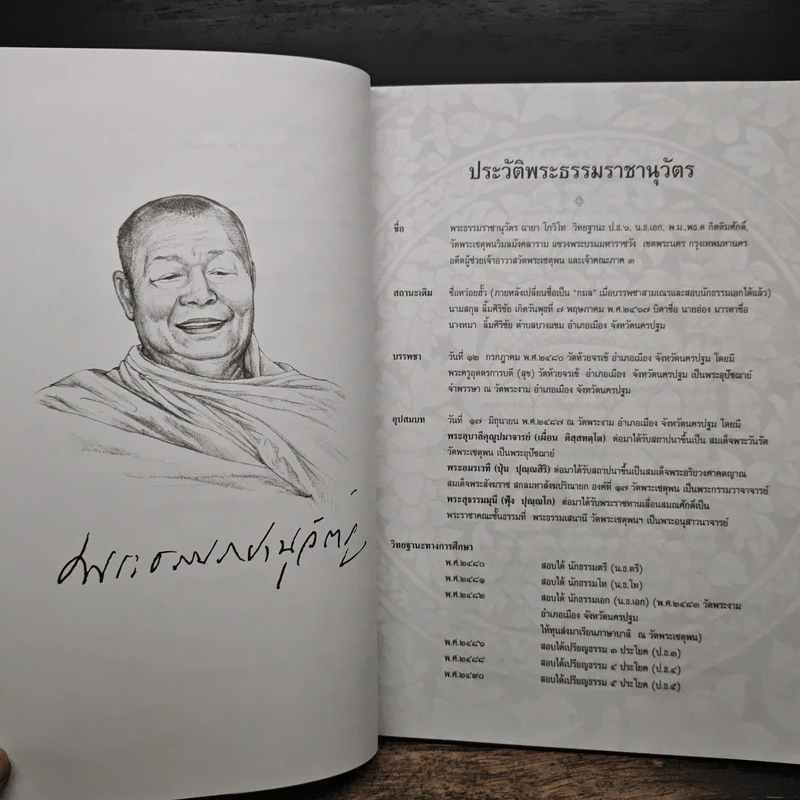 พระธรรมราชานุวัตร
ประวัติพระธรรมราชานุวัตร
ชื่อ พระธรรมราชานุวัตร ฉายา โกวิโท วิทยฐานะ ป.ธ.๖, น.ธ.เอก, พ.ม.,พธ.ด กิตติมศักดิ์,
วัดพระเชตุพนวิมลมังคลาราม แขวงพระบรมมหาราชวัง เขตพระนคร กรุงเทพมหานคร
อดีตผู้ช่วยเจ้าอาวาสวัดพระเชตุพน และเจ้าคณะภาค ๓
สถานะเดิม ชื่อหว่อยฮั้ว (ภายหลังเปลี่ยนชื่อเป็น "กมล" เมื่อบรรพชาสามเณรและสอบนักธรรมเอกได้แล้ว)
นามสกุล ลิ้มศิริชัย เกิดวันพุธที่ ๗ พฤษภาคม พ.ศ.๒๔๖๗ บิดาชื่อ นายฮ่อง มารดาชื่อ
นางหมา ลิ้มศิริชัย ตำบลบางแขม อำเภอเมือง จังหวัดนครปฐม
บรรพชา วันที่ ๑๒ กรกฎาคม พ.ศ.๒๔๘๐ วัดห้วยจรเข้ อำเภอเมือง จังหวัดนครปฐม โดยมี
พระครูอุตตรการบดี (สุข) วัดห้วยจรเข้ อำเภอเมือง จังหวัดนครปฐม เป็นพระอุปัชฌาย์
จำพรรษา ณ วัดพระงาม อำเภอเมือง จังหวัดนครปฐม
อุปสมบท วันที่ ๑๗ มิถุนายน พ.ศ.๒๔๘๗ ณ วัดพระงาม อำเภอเมือง จังหวัดนครปฐม โดยมี
พระอุบาลีคุณูปมาจารย์ (เผื่อน ติสฺสทตฺโต) ต่อมาได้รับสถาปนาขึ้นเป็น สมเด็จพระวันรัต
วัดพระเชตุพน เป็นพระอุปัชฌาย์
พระอมรเวที (ปุ่น ปุณฺณสิริ) ต่อมาได้รับสถาปนาขึ้นเป็นสมเด็จพระอริยวงศาคตญาณ
สมเด็จพระสังฆราช สกลมหาสังฆปริณายก องค์ที่ ๑๗ วัดพระเชตุพน เป็นพระกรรมวาจาจารย์
พระสุธรรมมุนี (ฟุ้ง ปุณฺณโก) ต่อมาได้รับพระราชทานเลื่อนสมณศักดิ์เป็น
พระราชาคณะชั้นธรรมที่ พระธรรมเสนานี วัดพระเชตุพนฯ เป็นพระอนุสาวนาจารย์
วิทยฐานะทางการศึกษา
พ.ศ.๒๔๘๐ สอบได้ นักธรรมตรี (น.ธ.ตรี)
พ.ศ.๒๔๘๑ สอบได้ นักธรรมโท (น.ธ.โท)
พ.ศ.๒๔๘๒ สอบได้ นักธรรมเอก (น.ธ.เอก) (พ.ศ.๒๔๘๓ วัดพระงาม
อำเภอเมือง จังหวัดนครปฐม
ให้ทุนส่งมาเรียนภาษาบาลี ณ วัดพระเชตุพน)
พ.ศ.๒๔๘๖ สอบได้เปรียญธรรม ๓ ประโยค (ป.ธ.๓)
พ.ศ.๒๔๘๘ สอบได้เปรียญธรรม ๔ ประโยค (ป.ธ.๔)
พ.ศ.๒๔๙๐ สอบได้เปรียญธรรม ๕ ประโยค (ป.ธ.๕)